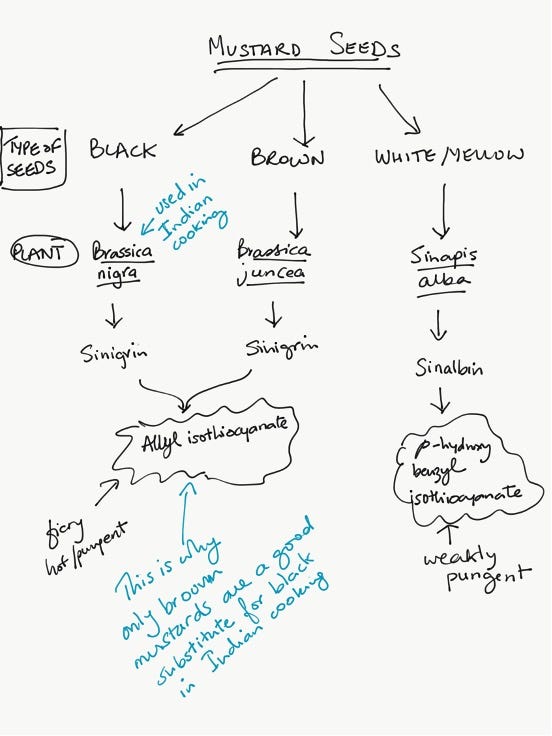 MUSTARD SEEDS
TYPE OF
SEEDS
BLACK
BROWN
WHITE/YELLOW
used in
Indian
cooking
PLANT
Brassica
nigra
Brassica
juncea
Sinapis
alba
Sinigrin
Sinigrin
Sinalbin
Allyl isothiocyanate
p-hydroxy
benzyl
isothiocyanate
fiery
hot/pungent
weakly
pungent
This is why
only broown
mustards are a good
substitute for black
in Indian cooking